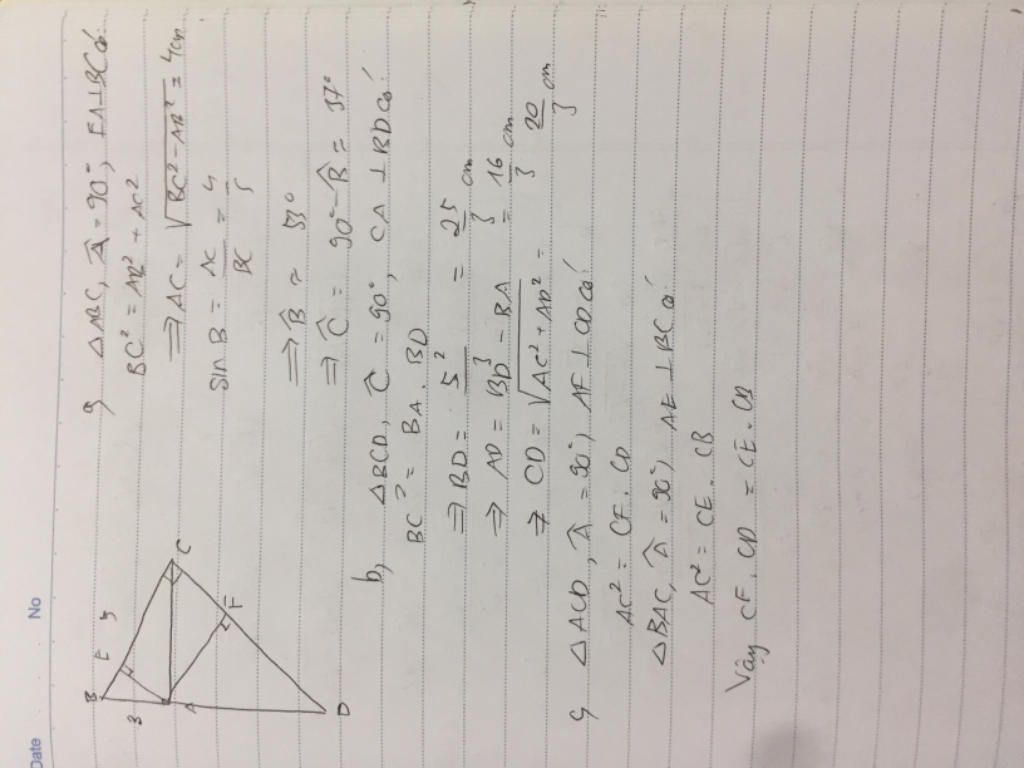 Date No
B E 5 C
3 A F
D
a, △ABC, Â = 90°, EA⊥BC có:
BC² = AB² + AC²
⇒ AC = √BC² - AB² = 4cm
sin B = AC/BC = 4/5
⇒ B̂ ≈ 53°
⇒ Ĉ = 90° - B̂ = 37°
b, △BCD, Ĉ = 90°, CA ⊥ BD có:
BC² = BA . BD
⇒ BD = 5²/3 = 25/3 cm
⇒ AD = BD - BA = 16/3 cm
⇒ CD = √AC² + AD² = 20/3 cm
c, △ACD, Â = 90°, AF ⊥ CD có:
AC² = CF . CD
△BAC, Â = 90°, AE ⊥ BC có:
AC² = CE . CB
Vậy CF . CD = CE . CB